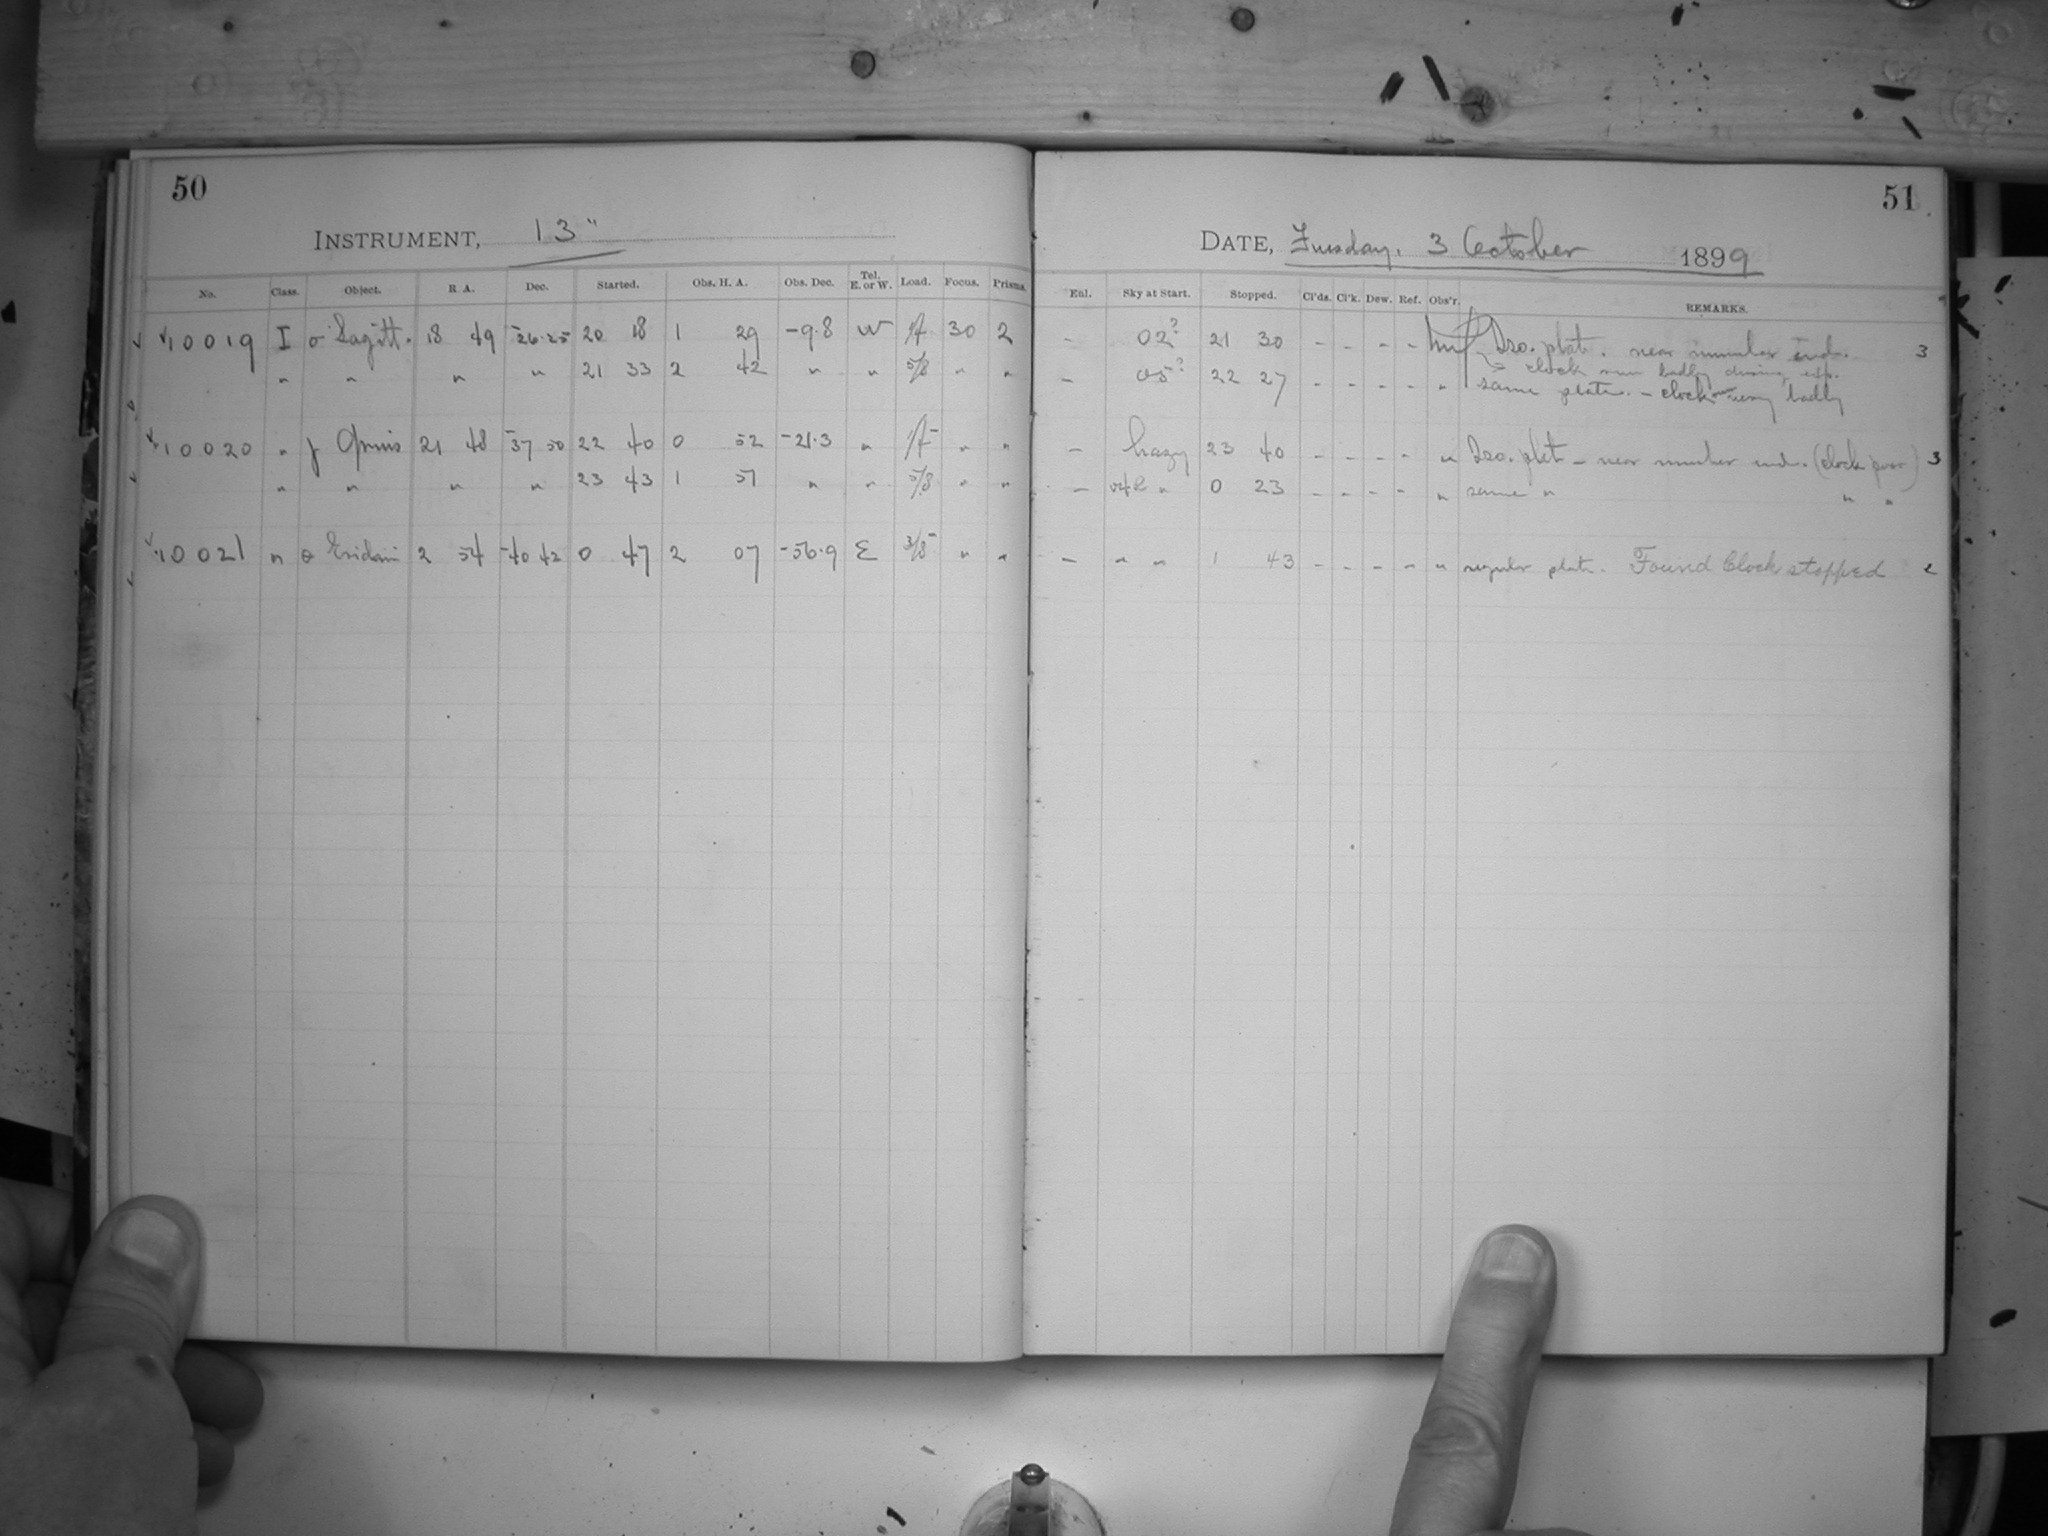 50
INSTRUMENT, 13"
No. Class. Object. R. A. Dec. Started. Obs. H. A. Obs. Dec. Tel. E. or W. Load. Focus. Prisms.
10019 I σ Sagitt. 18 49 -26·25 20 18 1 29 -9·8 W 30 2
" " " " 21 33 2 42 " " 5/8 " "
10020 " γ Gruis 21 48 -37 50 22 40 0 52 -21·3 " " "
" " " " 23 43 1 57 " " 5/8 " "
10021 " θ Eridani 2 54 -40 42 0 47 2 07 -56·9 E 3/8 " "
51
DATE, Tuesday, 3 October 1899
Enl. Sky at Start. Stopped. Cl'ds. Cl'k. Dew. Ref. Obs'r. REMARKS.
- 02? 21 30 - - - - Iso. plate. near number end. 3
clock run badly during exp.
- 05? 22 27 - - - - " same plate. - clock run very badly
- hazy 23 40 - - - - " Iso. plate - near number end. (clock poor) 3
- " 0 23 - - - - " same " " "
- " " 1 43 - - - - " regular plate. Found Clock stopped 2